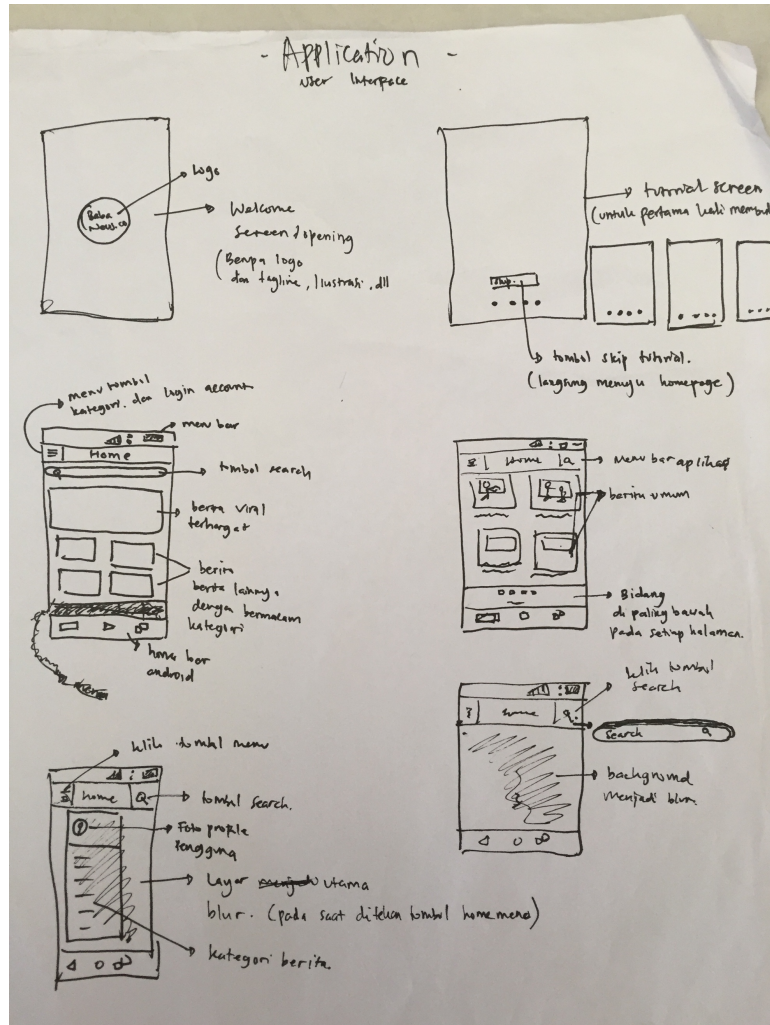 - Application -
User Interface
Logo
Baba
News.co
Welcome
Screen / opening
(Berupa logo
dan tagline, Ilustrasi, dll
tutorial screen
(untuk pertama kali membu
skip
tombol skip tutorial.
(langsung menuju homepage)
menu tombol
kategori. dan login account
menu bar
Home
tombol search
berita viral
terhangat
berita
berita lainnya
dengan bermacam
kategori
home bar
android
menu
Home
Menu bar aplikasi
berita umum
Bidang
di paling bawah
pada setiap halaman.
klik tombol
search
home
Search
background
menjadi blur.
klik tombol menu
home
tombol search.
Foto profile
Pengguna
Layar utama
blur. (pada saat ditekan tombol home menu)
kategori berita.